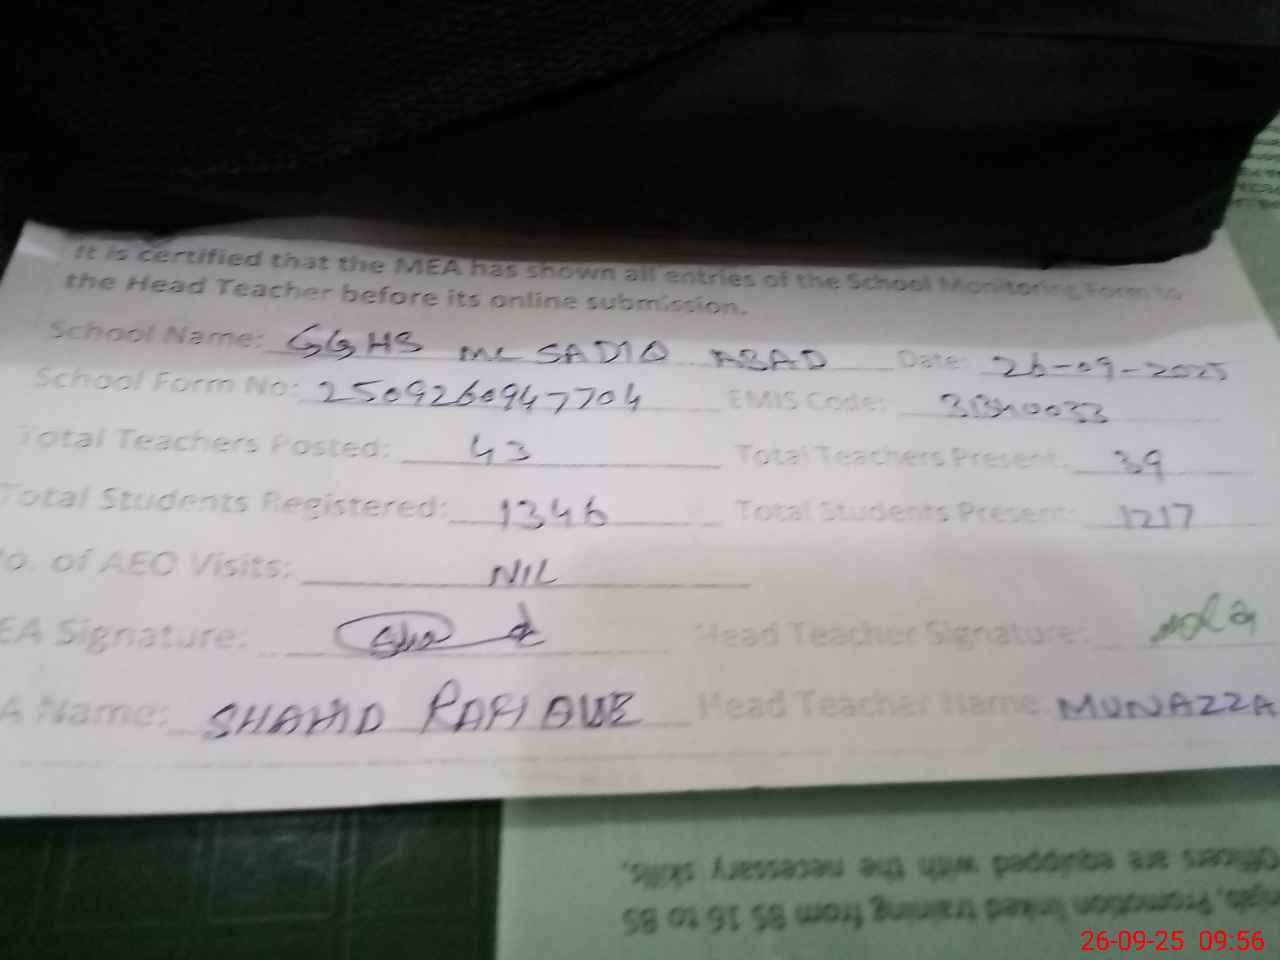 It is certified that the MEA has shown all entries of the School Monitoring Form to
the Head Teacher before its online submission.
School Name: GGHS MC SADIQ ABAD Date: 26-09-2025
School Form No: 2509260947704 EMIS Code:
Total Teachers Posted: 43 Total Teachers Present: 39
Total Students Registered: 1346 Total Students Present: 1217
o. of AEO Visits: NIL
EA Signature: Head Teacher Signature:
A Name: SHAHID RAFIQUE Head Teacher Name MUNAZZA
Officers are equipped with the necessary skills.
Promotion linked training from BS 16 to BS
26-09-25 09:56